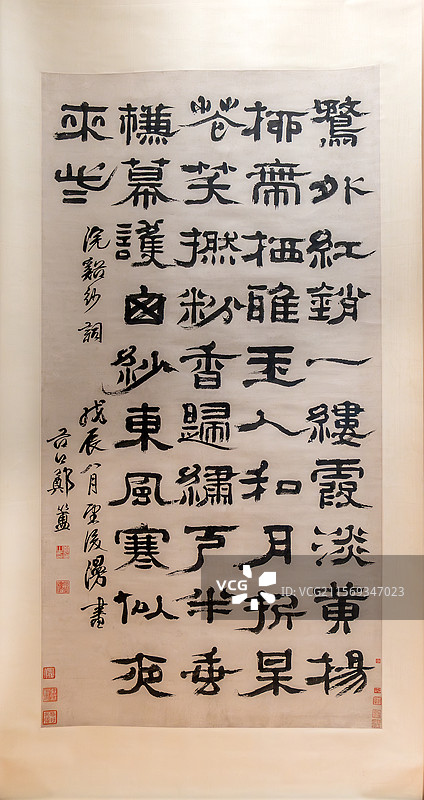 鶩外紅銷一縷霞淡黃楊
柳帶栖雅玉人和月折呆
花笑撚粉香歸繡戶半垂
簾幕護窗紗東風寒似夜
來些
浣谿紗詞 戊辰八月望後漫書
谷口鄭簠
VCG
VCG
ID:VCG211569347023